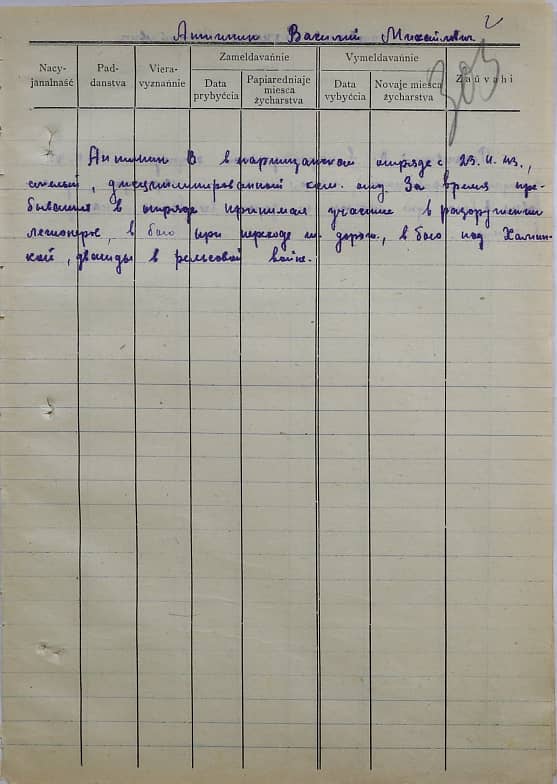 2
Василий Михайлович
303
Nacy-
janalnaść
Pad-
danstva
Viera-
vyznańnie
Zameldavańnie
Data
prybyćcia
Papiaredniaje
miesca
žycharstva
Vymeldavańnie
Data
vybyćcia
Novaje miesca
žycharstva
Zaŭvahi
В в партизанском отряде с 23. 43.,
смелый, дисциплинированный ком. отд. За время пре-
бывания в отряде принимал участие в разоружении
легионеров, в бою при переходе ж. дороги, в бою под
дважды в рельсовой войне.